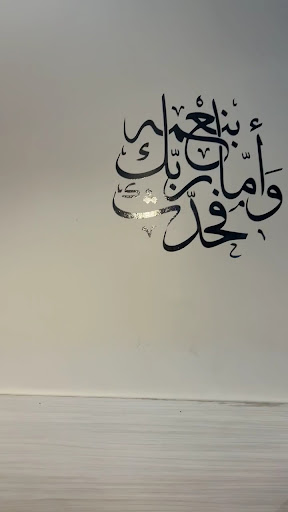 وَأمَّا بنعْمه ربّك فحدّث